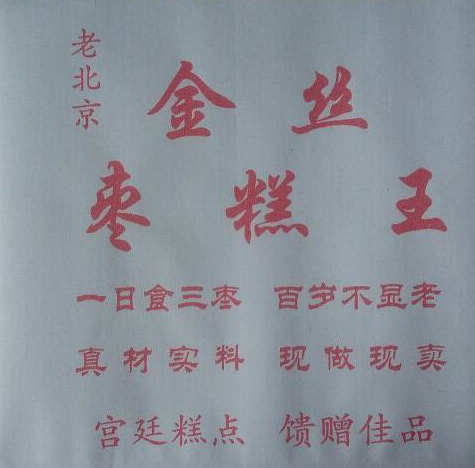 老北京
金丝
枣糕王
一日食三枣 百岁不显老
真材实料 现做现卖
宫廷糕点 馈赠佳品